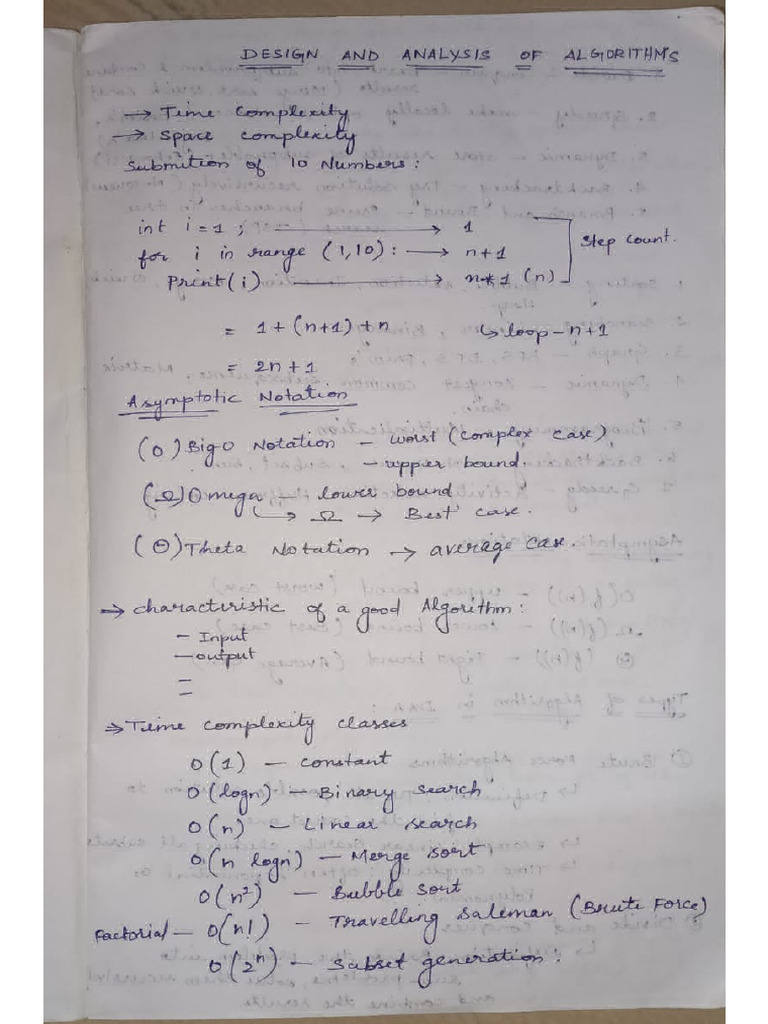 DESIGN AND ANALYSIS OF ALGORITHM'S
→ Time complexity
→ Space complexity
Submition of 10 Numbers:
int i = 1 ; → 1
for i in range (1,10): → n+1
Print(i) → n*1 (n)
Step count.
= 1 + (n+1) + n ↳ loop – n+1
= 2n + 1
Asymptotic Notation
(O) Big O Notation – worst (complex case)
– upper bound.
(Ω) Omega – lower bound
↳ Ω → Best case.
(Θ) Theta Notation → average case.
→ characteristic of a good Algorithm:
– Input
– output
–
–
→ Time complexity classes
O(1) – constant
O(logn) – Binary search
O(n) – Linear search
O(n logn) – Merge sort
O(n²) – Bubble sort
Factorial – O(n!) – Travelling Saleman (Brute Force)
O(2ⁿ) – Subset generation.